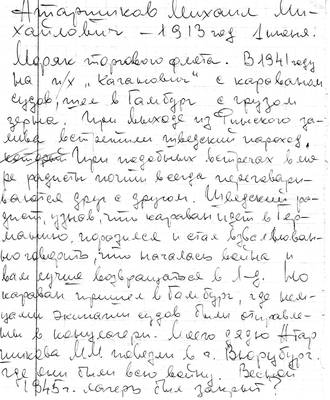 Атарщиков Михаил Ми-
хайлович – 1913 год 1 июня.
Моряк торгового флота. В 1941 году
на п/х "Каганович" с караваном
судов, шел в Гамбург с грузом
зерна. При выходе из Финского за-
лива встретили шведский пароход.
которой При подобных встречах в мо-
ре радисты почти всегда переговари-
ваются друг с другом. Шведский ра-
дист, узнав, что караван идет в Гер-
манию, поразился и стал взволнован-
но говорить, что началась война и
вам лучше возвращаться в Л-д. Но
караван пришел в Гамбург, где нем-
цами экипажи судов были отправле-
ны в концлагери. Моего дядю Атар-
щикова М.М. повезли в г. Вюрцбург.
где они были всю войну. Весной
1945 г. лагерь был закрыт?